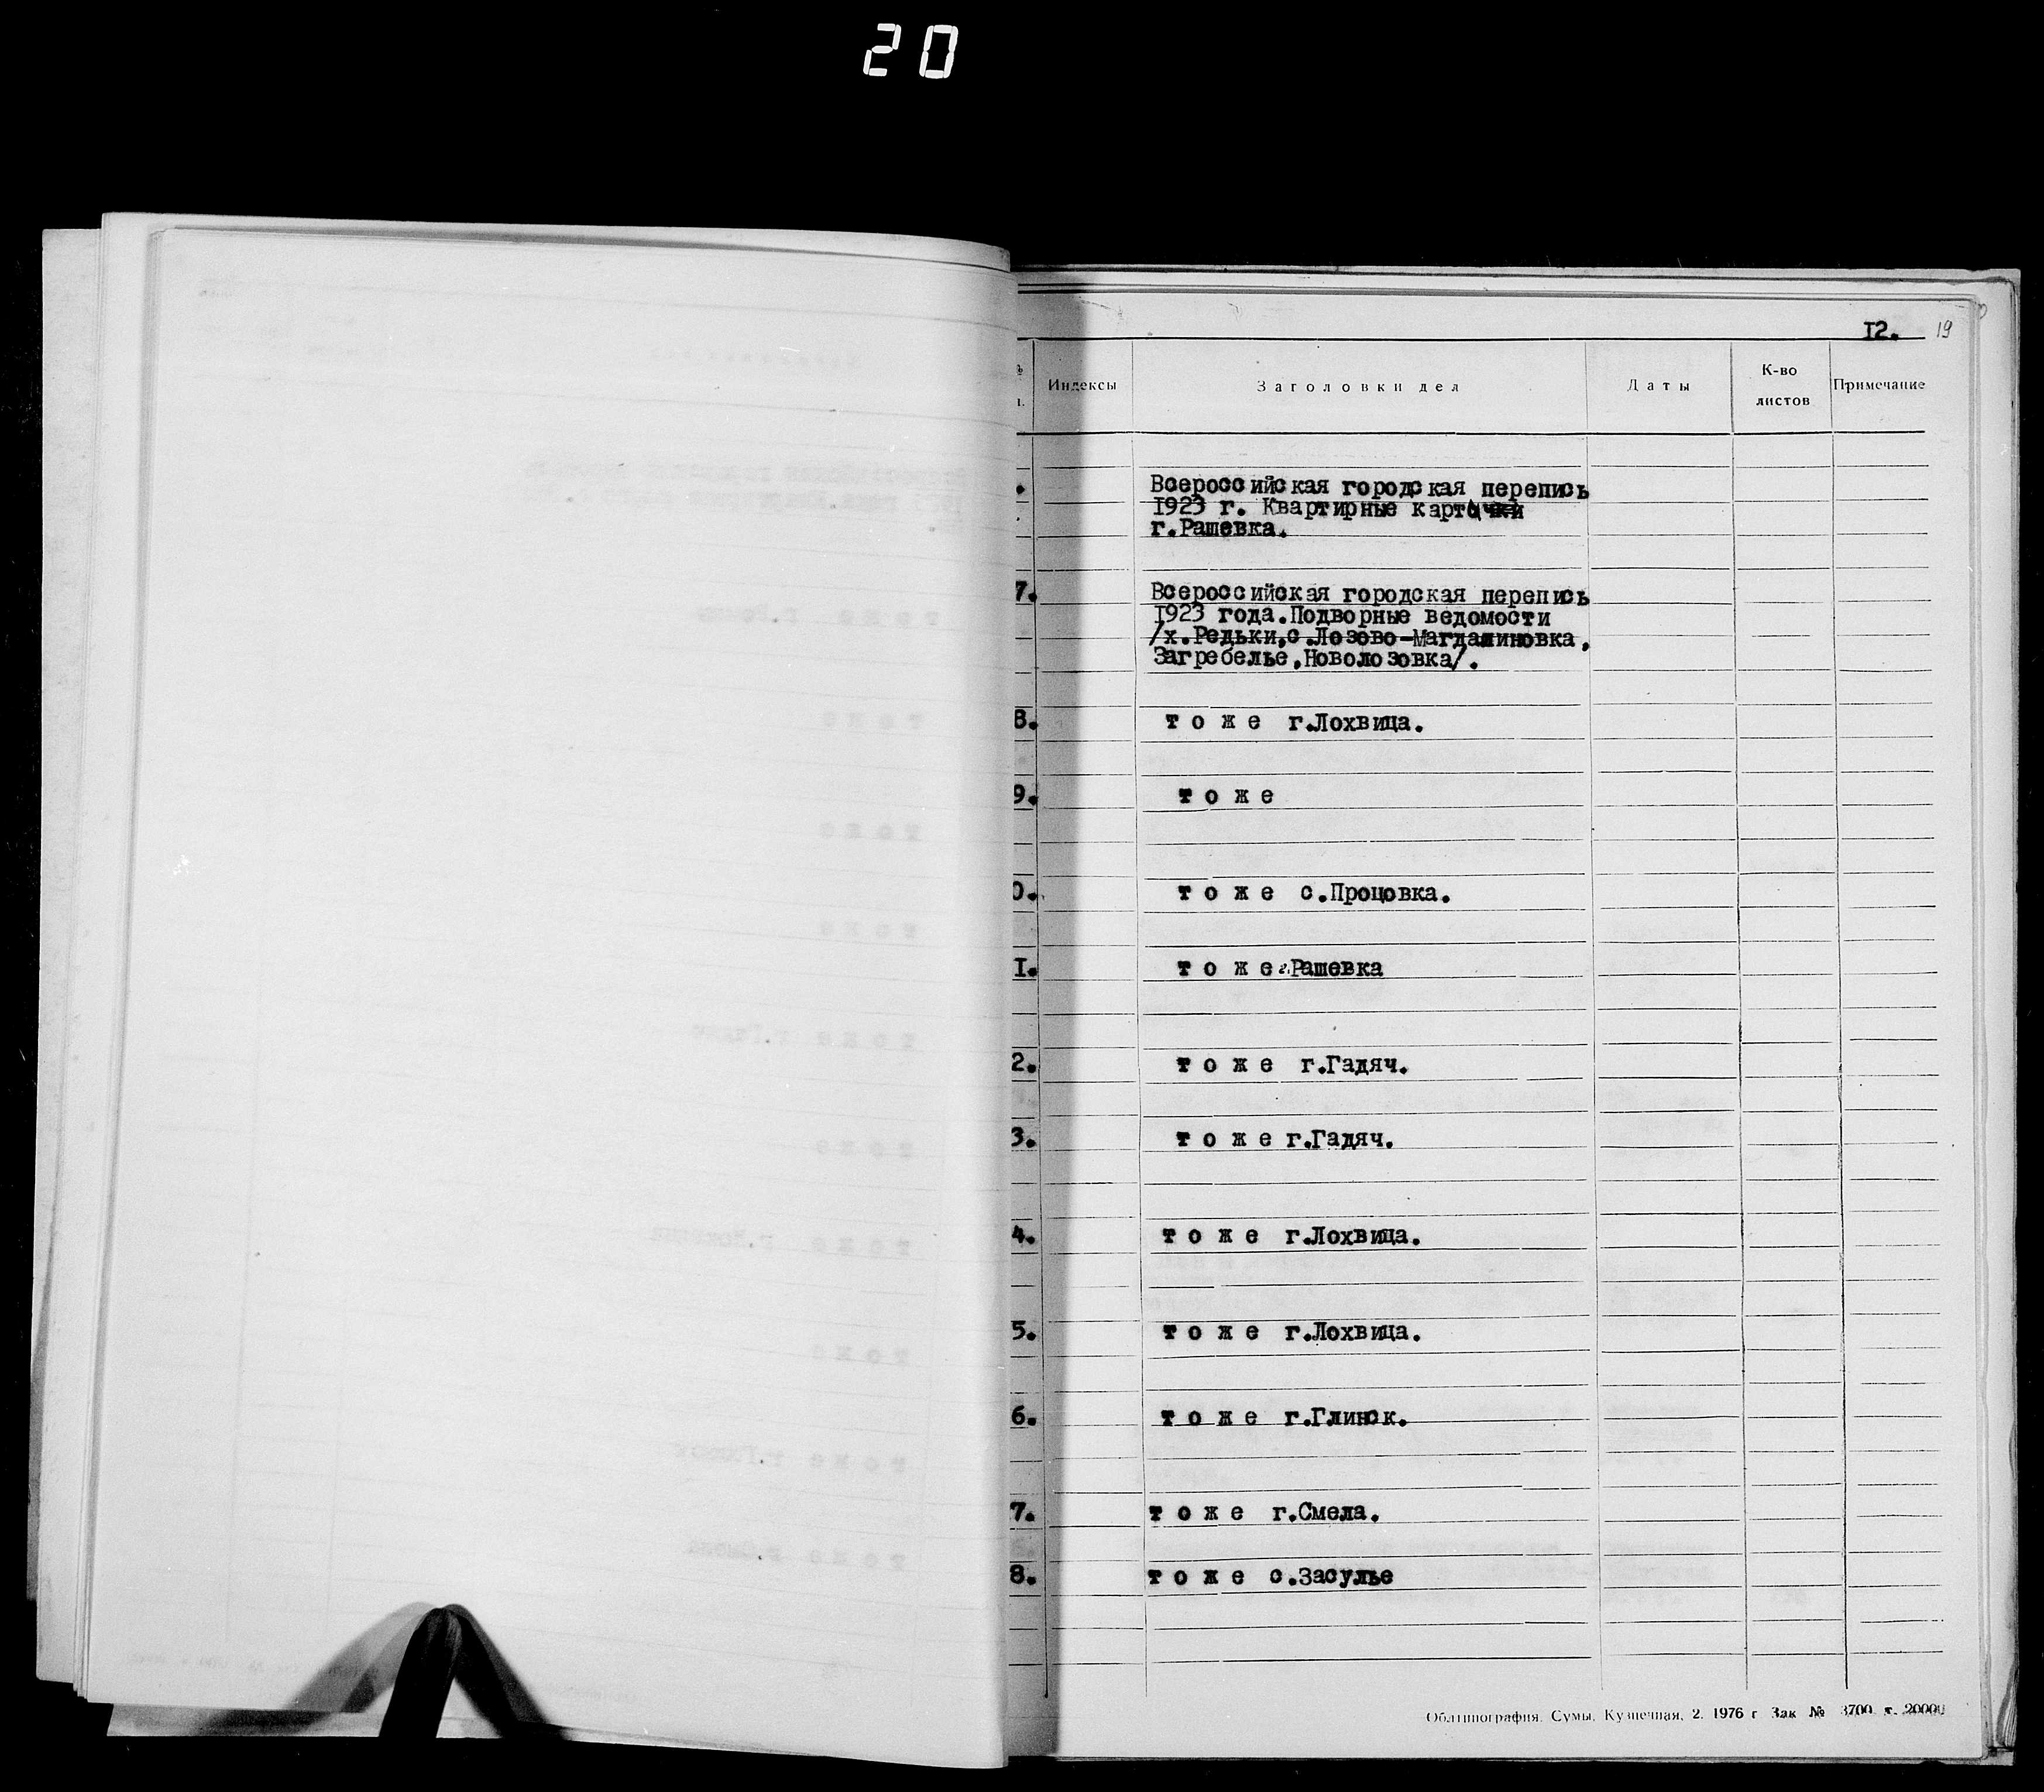 20
I2. 19
Индексы Заголовки дел Даты К-во листов Примечание
. Всероссийская городская перепись
I923 г. Квартирные карточки
г.Рашевка.
7. Всероссийская городская перепись
I923 года.Подворные ведомости
/х.Редьки,с.Лозово-Магдалиновка,
Загребелье,Новолозовка/.
8. т о ж е г.Лохвица.
9. т о ж е
0. т о ж е с.Процовка.
I. т о ж е г.Рашевка
2. т о ж е г.Гадяч.
3. т о ж е г.Гадяч.
4. т о ж е г.Лохвица.
5. т о ж е г.Лохвица.
6. т о ж е г.Глинск.
7. т о ж е г.Смела.
8. т о ж е с.Засулье
Облтипография, Сумы, Кузнечная, 2. 1976 г Зак № 3700 т. 20000